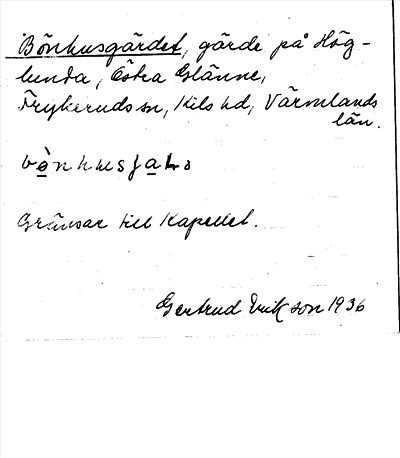 Bönhusgärdet, gärde på Hög-
lunda, Östra Glänne,
Frykeruds sn, Kils hd, Värmlands
län.
Gränsar till Kapellet.
Gertrud Erikson 1936